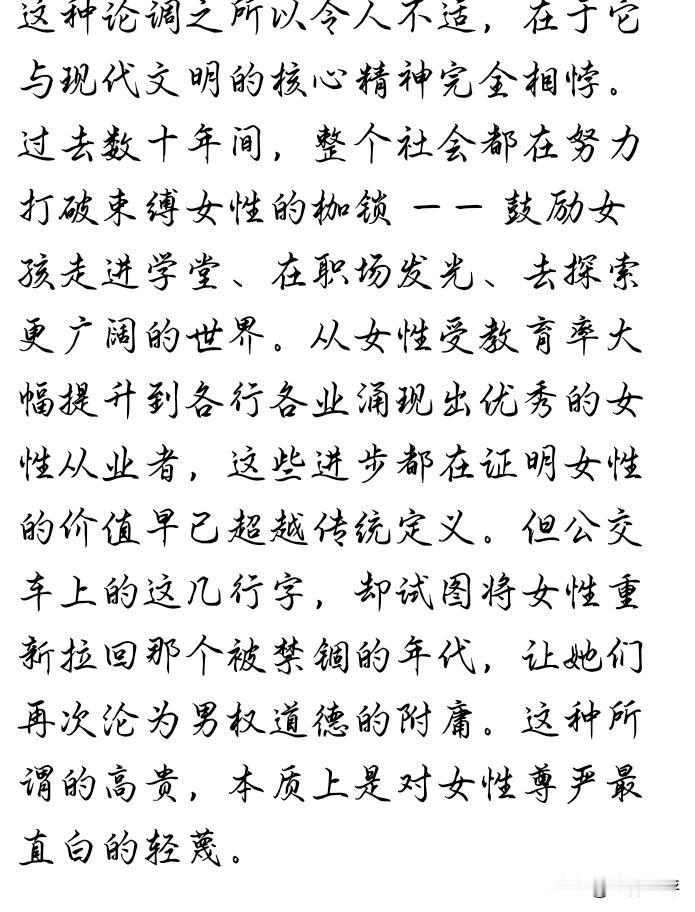 这种论调之所以令人不适，在于它
与现代文明的核心精神完全相悖。
过去数十年间，整个社会都在努力
打破束缚女性的枷锁 —— 鼓励女
孩走进学堂、在职场发光、去探索
更广阔的世界。从女性受教育率大
幅提升到各行各业涌现出优秀的女
性从业者，这些进步都在证明女性
的价值早已超越传统定义。但公交
车上的这几行字，却试图将女性重
新拉回那个被禁锢的年代，让她们
再次沦为男权道德的附庸。这种所
谓的高贵，本质上是对女性尊严最
直白的轻蔑。